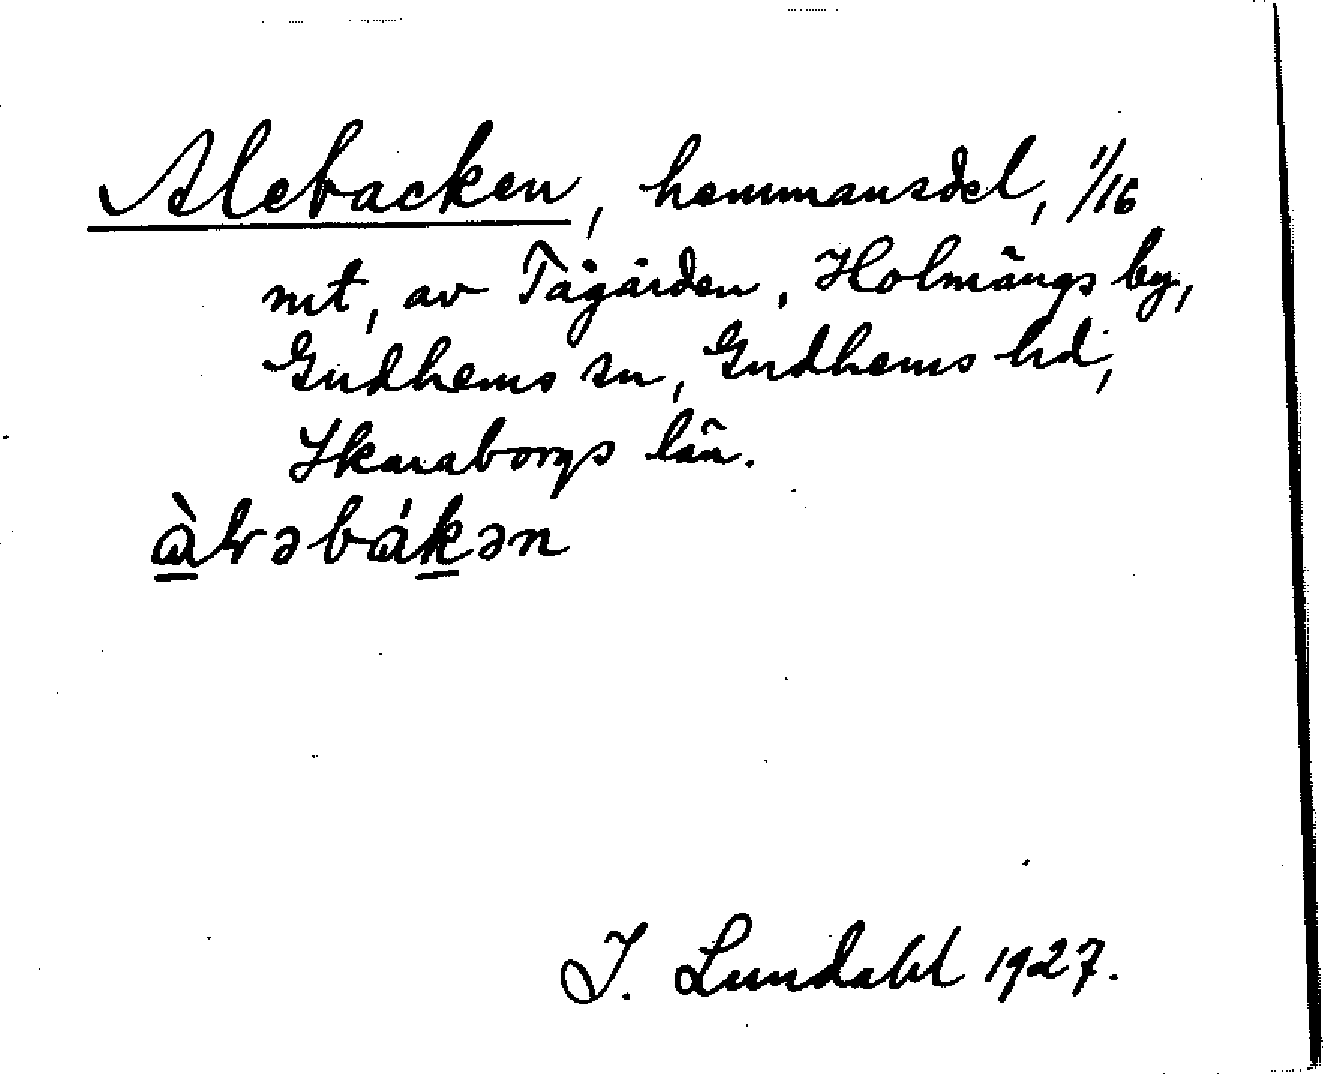 Alebacken, hemmansdel, 1/16
mt, av Tågården, Holmängs by,
Gudhems sn, Gudhems hd,
Skaraborgs län.
àləbákən
I. Lundahl 1927.